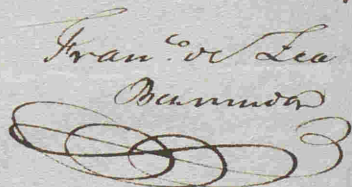 Fran.co de Zea
Bermudez